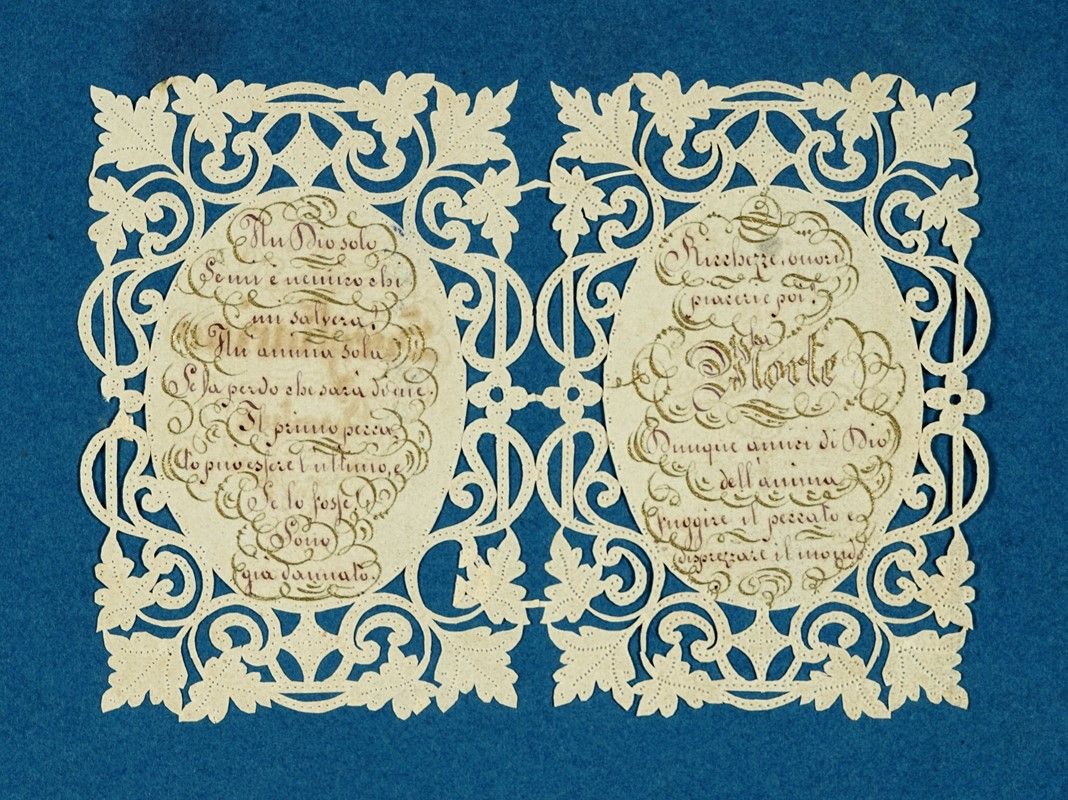 Un Dio solo
Se mi è nemico chi
mi salverà?
Un'anima sola
Se la perdo che sarà di me.
Il primo pecca,
to può essere l'ultimo, e
Se lo fosse,
Sono
già dannato.
Ricchezze, onori
piaceri e poi?
La
Morte
Dunque amor di Dio
dell'anima
fuggire il peccato e
disprezzare il mondo